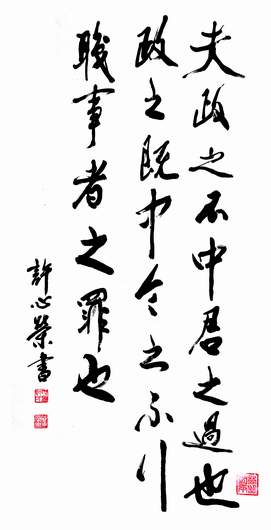 夫政之不中君之過也
政之既中令之不行
職事者之罪也
許心榮書